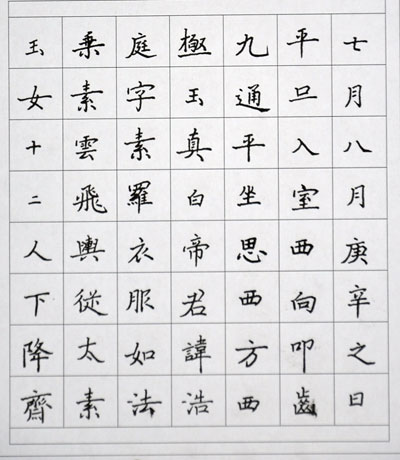 七月八月庚辛之日
平旦入室西向叩齒
九通平坐思西方西
極玉真白帝君諱浩
庭字素羅衣服如法
乗素雲飛輿從太素
玉女十二人下降齊